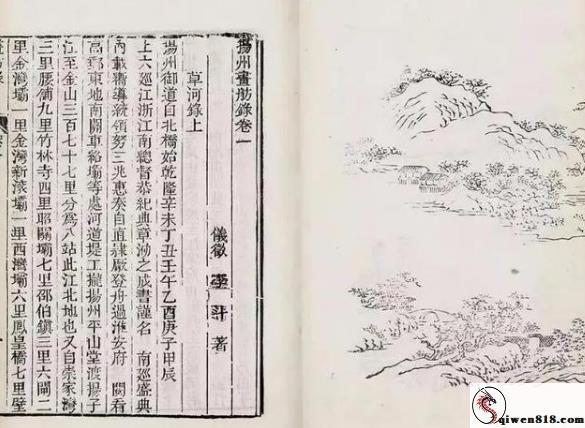 揚州畫舫錄卷一
儀徵 李斗 著
草河錄上
揚州御道自北橋始乾隆辛未丁丑壬午乙酉庚子甲辰
上六巡江浙江南總督恭紀典章泐之成書謹名 南巡盛典
內載嚮導統領努三兆惠奏自直隸厰登舟過淮安府 閱看
高郵東地南關車絡壩等處河道堤工攏揚州平山堂渡揚子
江至金山三百七十七里分爲八站此江北地也又自崇家灣
三里腰舖九里竹林寺四里耶關壩七里邵伯鎮三里六閘二
里金灣壩一里金灣新滚壩一里西灣壩六里鳳皇橋七里壁
qiwen818.com